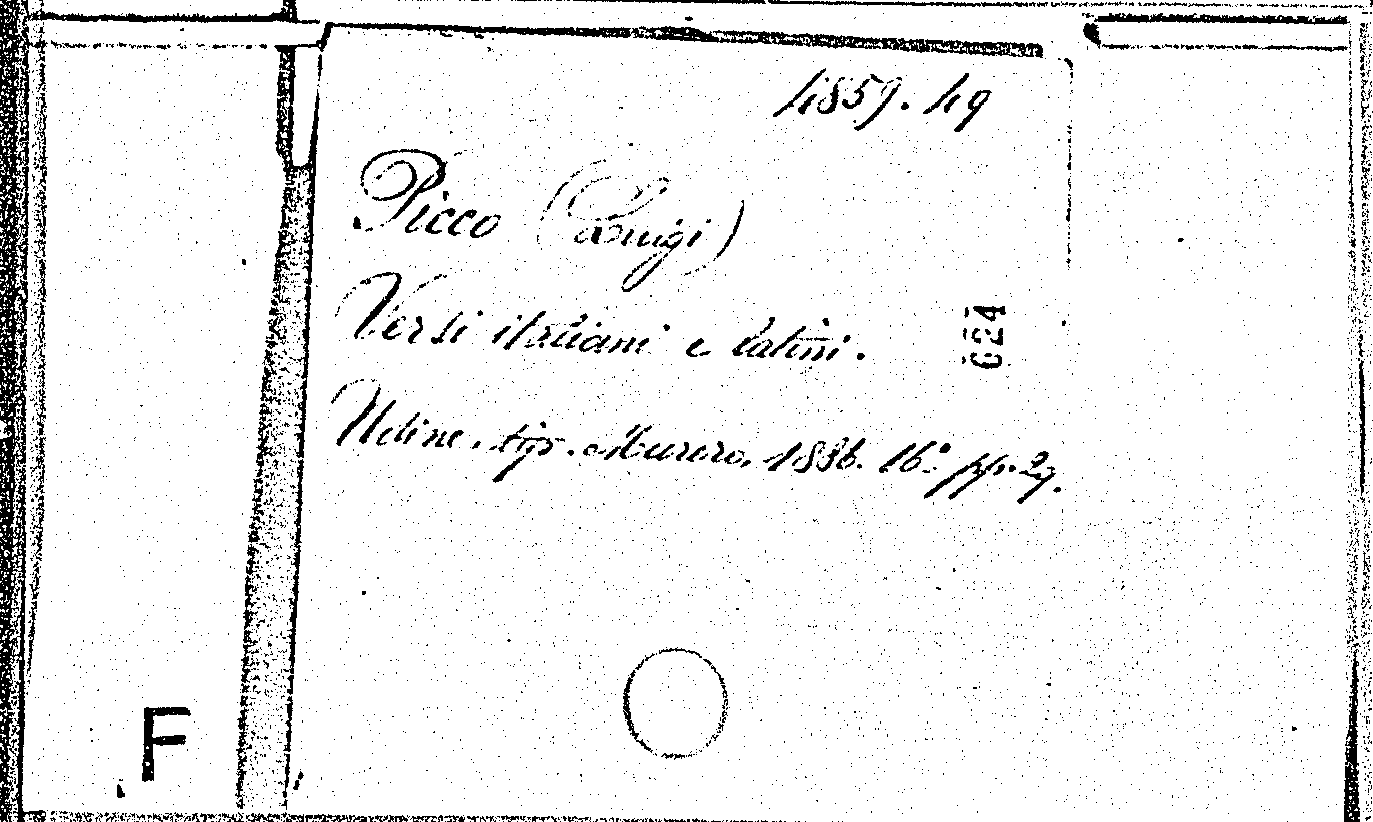 4859.49
Picco (Luigi)
Versi italiani e latini.
624
Udine. tip. Murero, 1836. 16.º pp. 29.
F